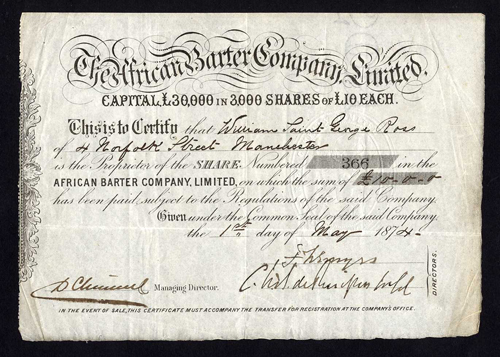 The African Barter Company, Limited.
CAPITAL £30,000 IN 3,000 SHARES OF £10 EACH.
This is to Certify that William Saint George Ross
of 4 Norfolk Street Manchester
is the Proprietor of the SHARE Numbered 366 in the
AFRICAN BARTER COMPANY, LIMITED, on which the sum of £10-0-0
has been paid subject to the Regulations of the said Company.
Given under the Common Seal of the said Company
the 1st day of May 1874
Managing Director.
DIRECTORS.
IN THE EVENT OF SALE, THIS CERTIFICATE MUST ACCOMPANY THE TRANSFER FOR REGISTRATION AT THE COMPANY'S OFFICE.